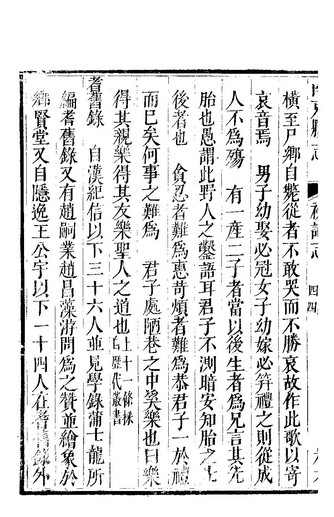 志 四四
橫至尸鄉自斃從者不敢哭而不勝哀故作此歌以寄
哀音焉 男子幼娶必冠女子幼嫁必笄禮之則從成
人不爲殤 有一產二子者當以後生者爲兄言其先
胎也愚謂此野人之鑿語耳君子不測暗安知胎之先
後者也 貪忍者難爲惠苛煩者難爲恭君子一
而已矣何事之難爲 君子處陋巷之中奚樂也曰樂
得其親樂得其友樂聖人之道也 上十一條採自歷代叢書
耆舊錄 自漢紀信以下三十六人並見學錄蒲士龍所
編耆舊錄又有趙嗣業趙昌藻游問爲之贊並繪象於
鄉賢堂又自隱逸王公宇以下一十四人在耆舊錄外